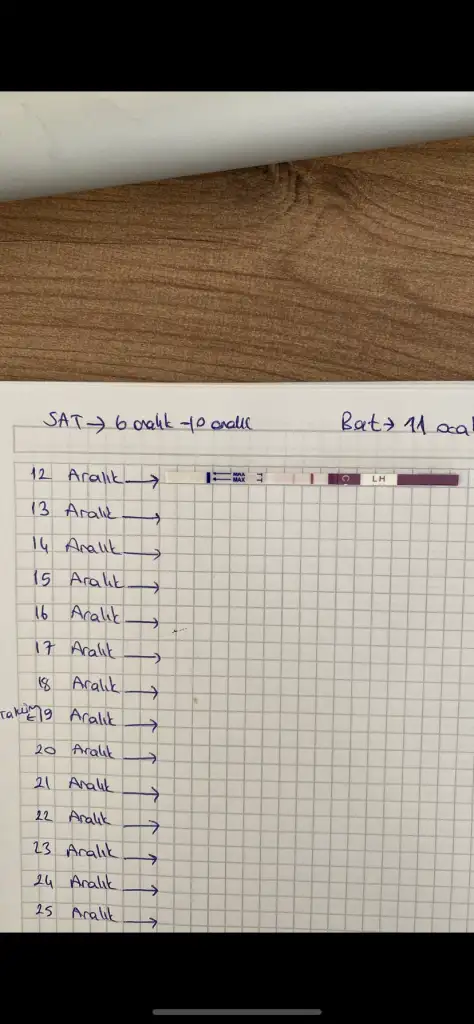 SAT → 6 aralık - 10 aralık
Bat → 11 oca
12 Aralık →
MAX
MAX
LH
13 Aralık →
14 Aralık →
15 Aralık →
16 Aralık →
17 Aralık →
18 Aralık →
19 Aralık →
20 Aralık →
21 Aralık →
22 Aralık →
23 Aralık →
24 Aralık →
25 Aralık →